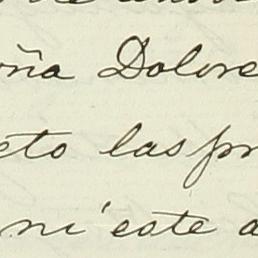 oña Dolore
eto las pr
ni este a